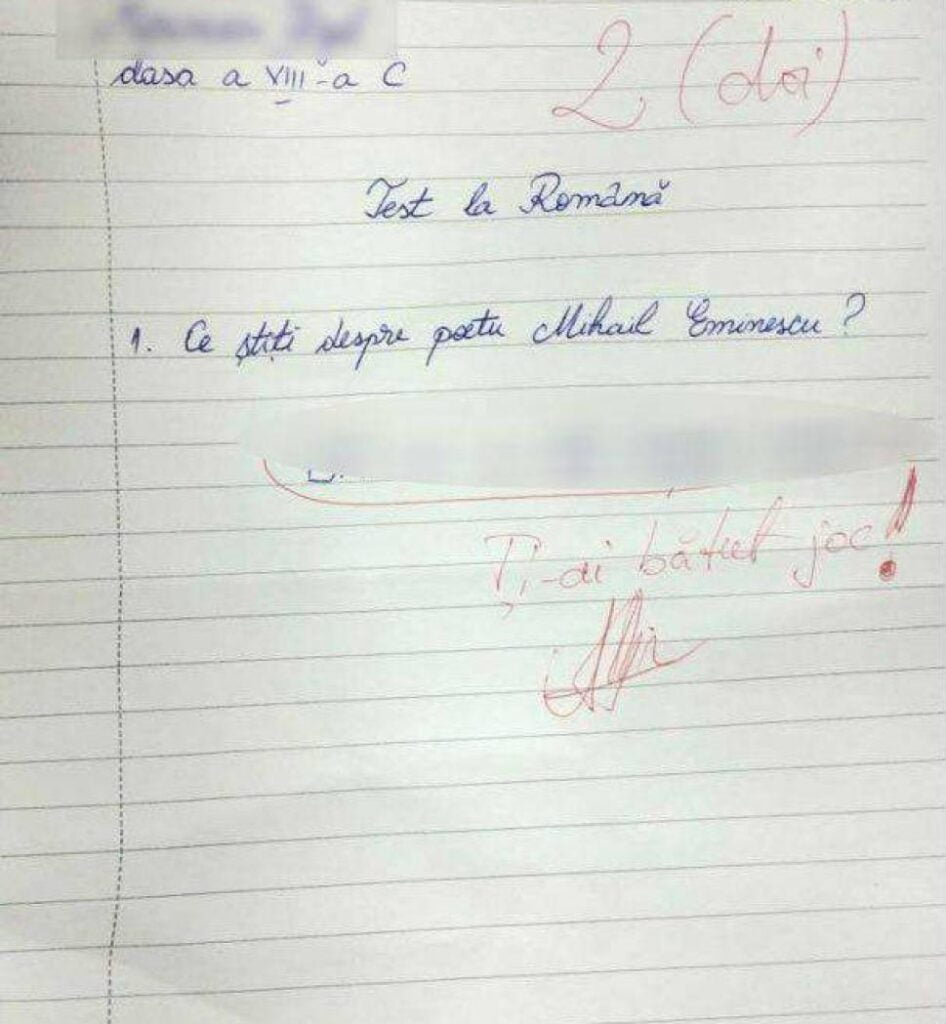 clasa a VIII-a C
2 (doi)
Test la Română
1. Ce știți despre poetu Mihail Eminescu?
Ți-ai bătut joc!